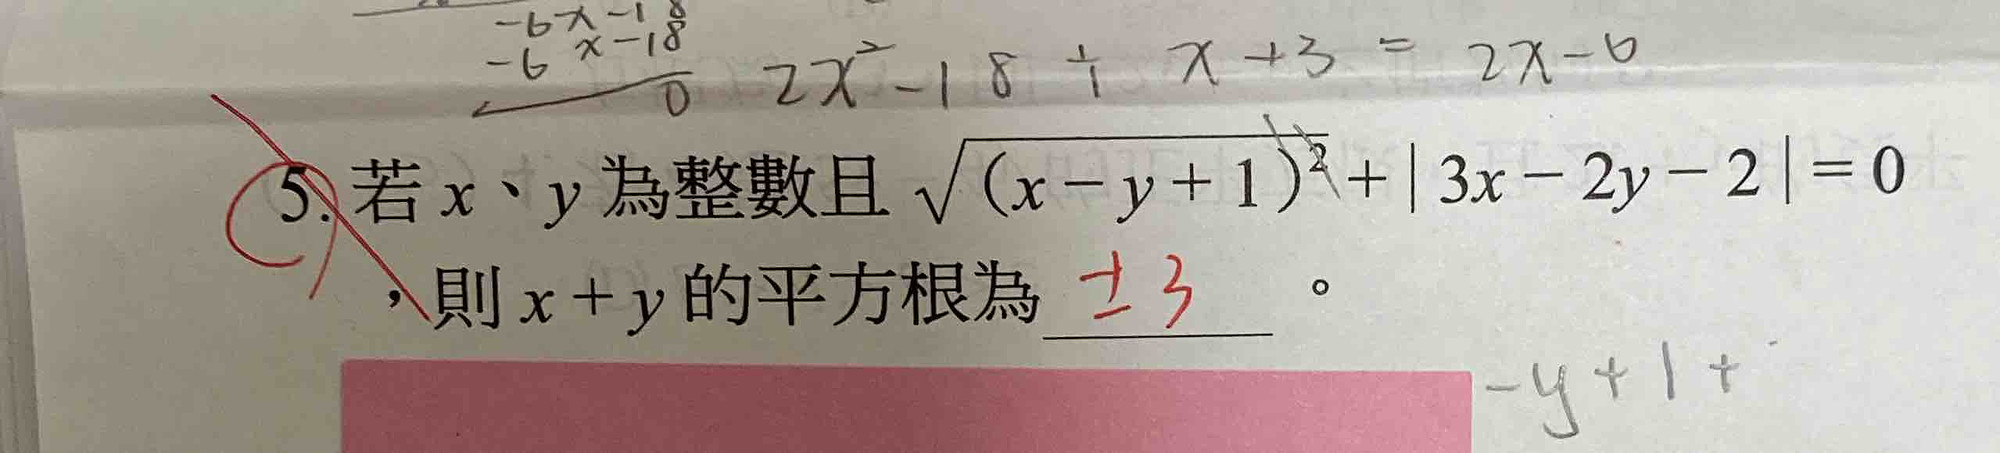 -6x-18
-6x-18
0
2x²-18÷x+3=2x-6
5. 若 x、y 為整數且 √(x-y+1)² + | 3x-2y-2 | = 0
，則 x+y 的平方根為 ±3 。
-y+1+